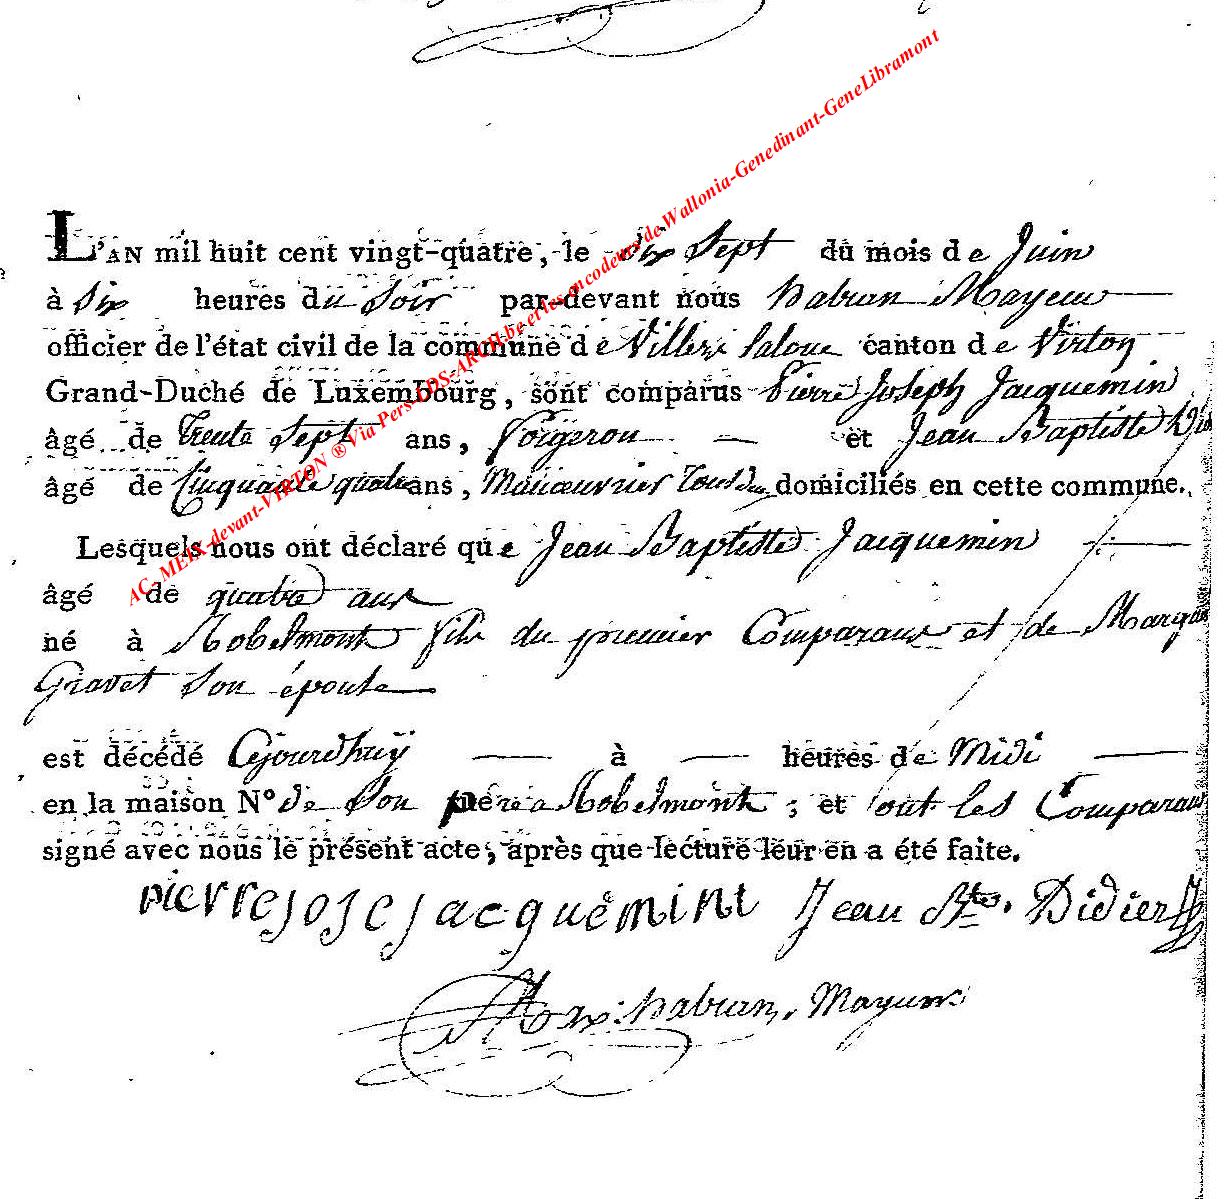 L'AN mil huit cent vingt-quatre, le dix Sept du mois de Juin
à Six heures du Soir par-devant nous habran Mayeur
officier de l'état civil de la commune de Villers laloue canton de Virton
Grand-Duché de Luxembourg, sont comparus Pierre Joseph Jacquemin
âgé de Trente Sept ans, forgeron et Jean Baptiste
âgé de Cinquante quatre ans, Manoeuvrier Tous deux domiciliés en cette commune.
Lesquels nous ont déclaré que Jean Baptiste Jacquemin
âgé de quatre ans
né à Robelmont fils du premier Comparant et de
Gravet Son épouse
est décédé Cejourdhuy à heures de Midi
en la maison N° de Son père a Robelmont ; et ont les Comparans
signé avec nous le présent acte, après que lecture leur en a été faite.
Pierre Jose Jacquemint Jean Btte. Didier
habran, Mayeur
AC- MEIX-devant-VIRTON ® Via Pers-DDS-ARCH.be et les encodeurs de Wallonia-Genedinant-GeneLibramont